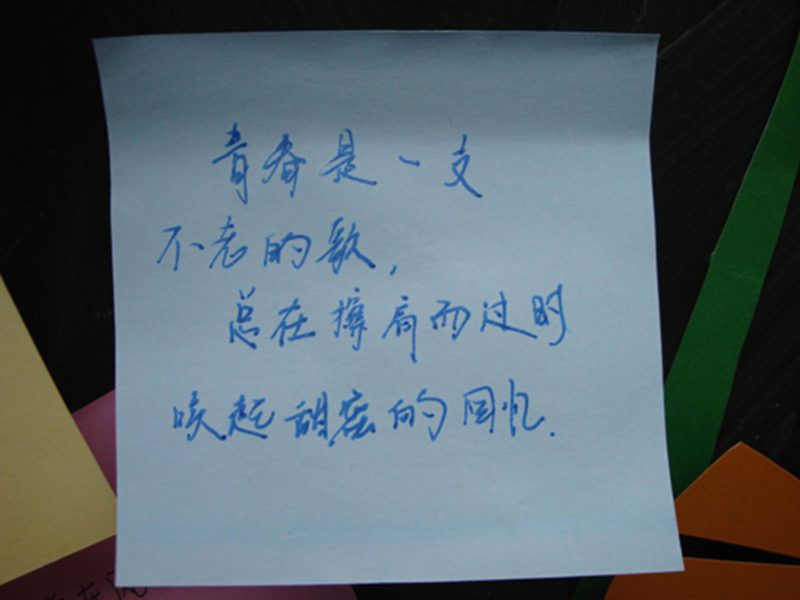 青春是一支
不老的歌,
总在擦肩而过时
唤起甜蜜的回忆.